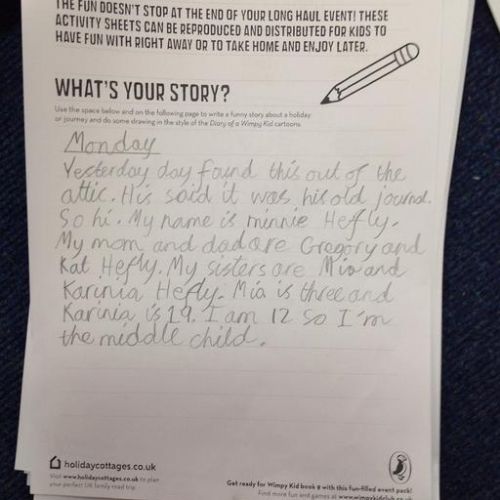 THE FUN DOESN'T STOP AT THE END OF YOUR LONG HAUL EVENT! THESE
ACTIVITY SHEETS CAN BE REPRODUCED AND DISTRIBUTED FOR KIDS TO
HAVE FUN WITH RIGHT AWAY OR TO TAKE HOME AND ENJOY LATER.
WHAT'S YOUR STORY?
Use the space below and on the following page to write a funny story about a holiday
or journey and do some drawing in the style of the Diary of a Wimpy Kid cartoons.
Monday
Yesterday day found this out of the
attic. His said it was his old journal.
So hi. My name is minnie Heffly.
My mom and dad are Gregory and
Kat Hefly. My sisters are Mia and
Karinia Hefly. Mia is three and
Karinia is 19. I am 12 so I'm
the middle child.
holidaycottages.co.uk
Visit www.holidaycottages.co.uk to plan
your perfect UK family road trip.
Get ready for Wimpy Kid book 9 with this fun-filled event pack!
Find more fun and games at www.wimpykidclub.co.uk